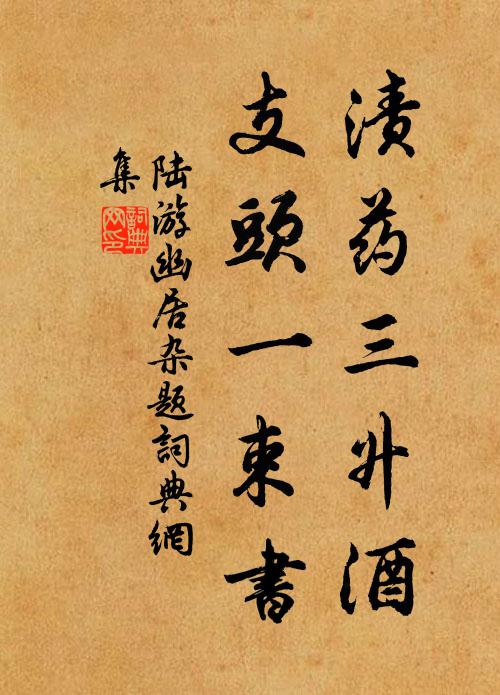 渍药三升酒
支頭一束書
陆游幽居杂题詞典網
集
詞典
网印